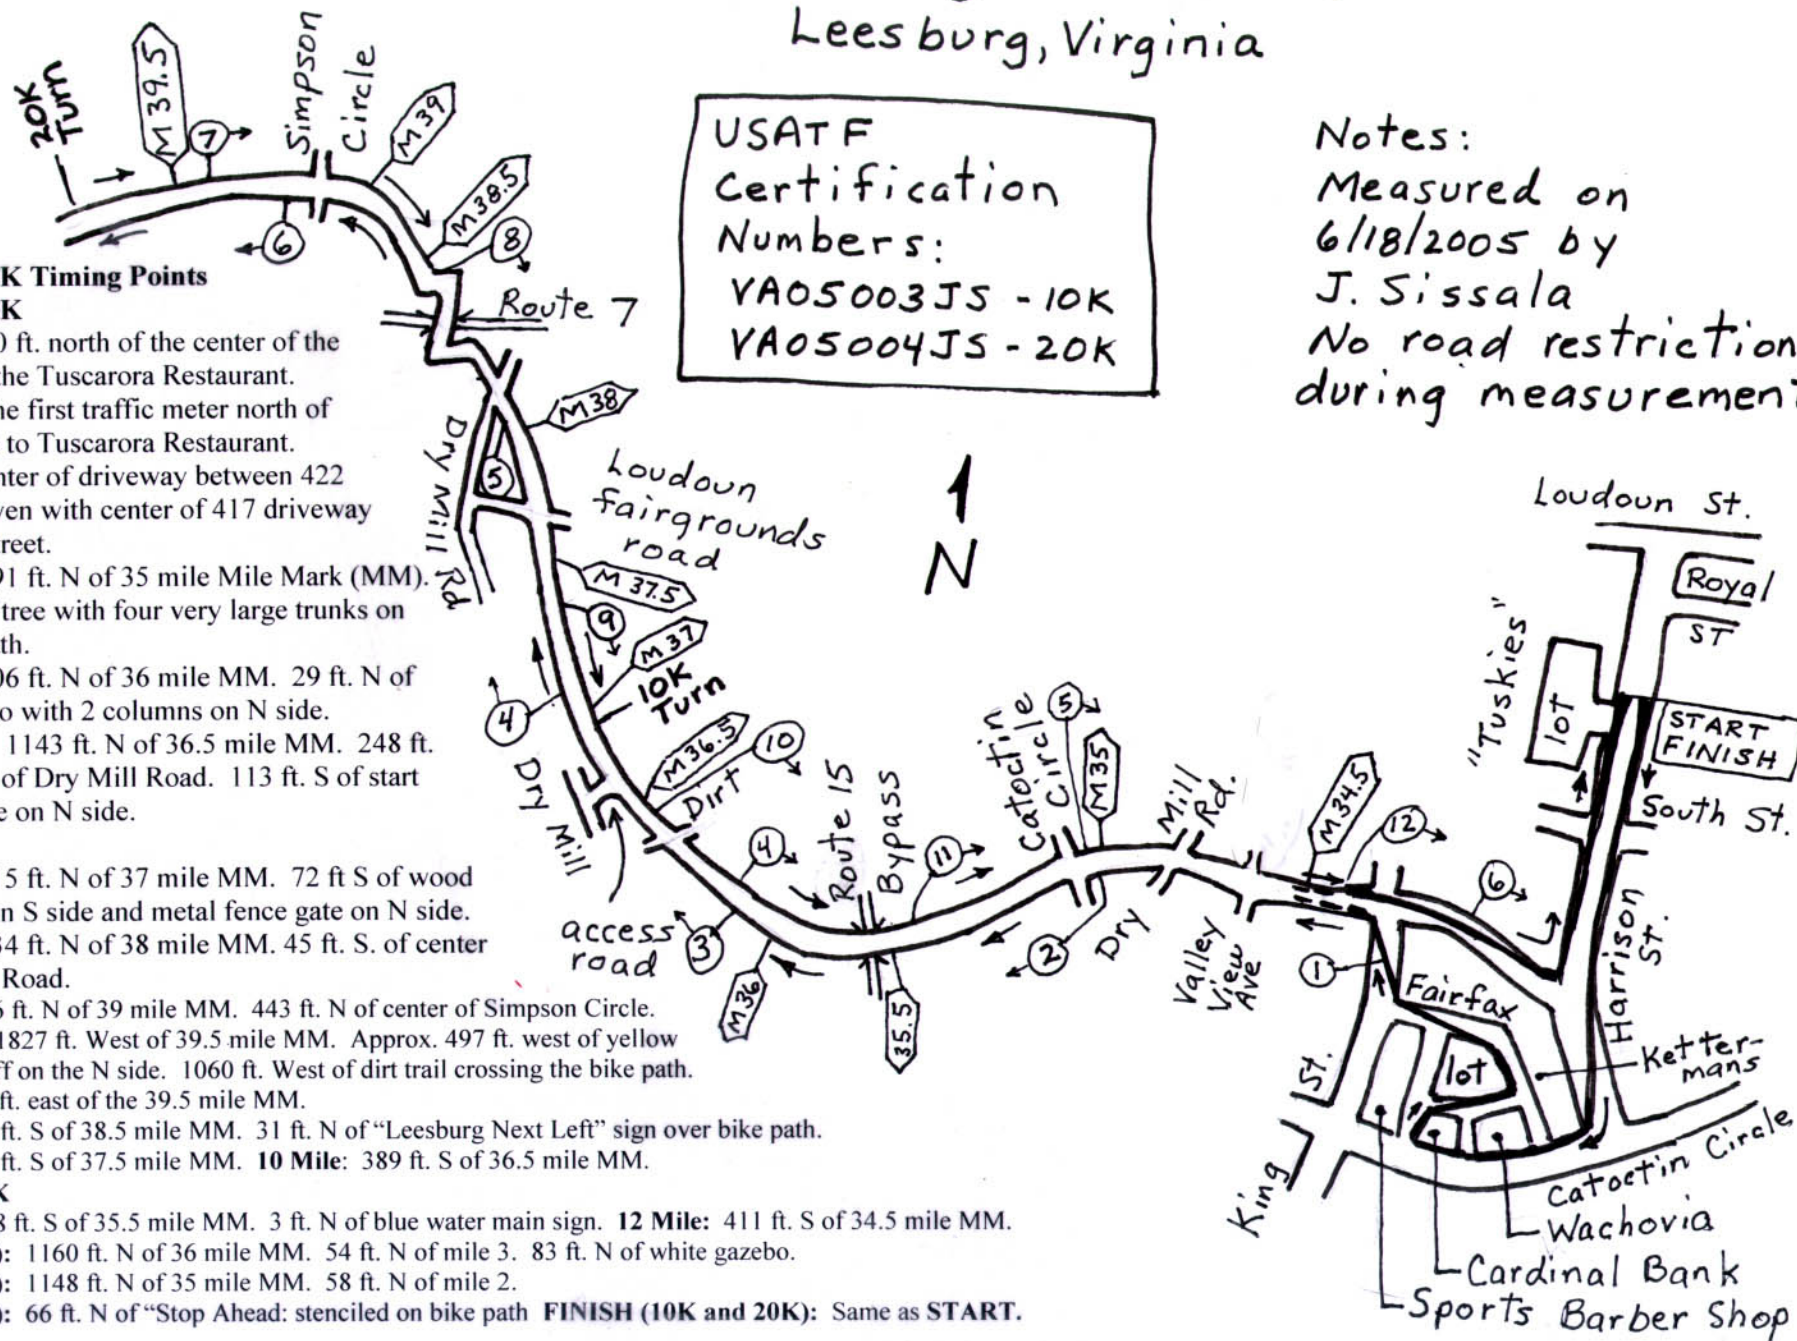 Leesburg, Virginia
USATF
Certification
Numbers:
VA05003JS - 10K
VA05004JS - 20K
Notes:
Measured on
6/18/2005 by
J. Sissala
No road restriction
during measurement
20K
Turn
M 39.5
7
Simpson
Circle
M 39
M 38.5
8
6
Route 7
M 38
5
Dry Mill Rd
Loudoun
fairgrounds
road
M 37.5
9
M 37
10K
Turn
4
M 36.5
10
Dirt
Dry Mill
access
road
4
3
M 36
Route 15
Bypass
11
35.5
Catoctin
Circle
5
M 35
2
Dry
Mill
Rd.
Valley
View
Ave
M 34.5
12
6
1
N
Loudoun St.
Royal
ST
"Tuskies"
lot
START
FINISH
South St.
Harrison
St.
Fairfax
lot
Ketter-
mans
King
St.
Catoctin Circle
Wachovia
Cardinal Bank
Sports Barber Shop
K Timing Points
K
0 ft. north of the center of the
the Tuscarora Restaurant.
he first traffic meter north of
to Tuscarora Restaurant.
nter of driveway between 422
ven with center of 417 driveway
reet.
91 ft. N of 35 mile Mile Mark (MM).
tree with four very large trunks on
th.
06 ft. N of 36 mile MM. 29 ft. N of
o with 2 columns on N side.
1143 ft. N of 36.5 mile MM. 248 ft.
of Dry Mill Road. 113 ft. S of start
e on N side.
5 ft. N of 37 mile MM. 72 ft S of wood
n S side and metal fence gate on N side.
34 ft. N of 38 mile MM. 45 ft. S. of center
Road.
6 ft. N of 39 mile MM. 443 ft. N of center of Simpson Circle.
1827 ft. West of 39.5 mile MM. Approx. 497 ft. west of yellow
ff on the N side. 1060 ft. West of dirt trail crossing the bike path.
ft. east of the 39.5 mile MM.
ft. S of 38.5 mile MM. 31 ft. N of “Leesburg Next Left” sign over bike path.
ft. S of 37.5 mile MM. 10 Mile: 389 ft. S of 36.5 mile MM.
K
8 ft. S of 35.5 mile MM. 3 ft. N of blue water main sign. 12 Mile: 411 ft. S of 34.5 mile MM.
): 1160 ft. N of 36 mile MM. 54 ft. N of mile 3. 83 ft. N of white gazebo.
): 1148 ft. N of 35 mile MM. 58 ft. N of mile 2.
): 66 ft. N of “Stop Ahead: stenciled on bike path FINISH (10K and 20K): Same as START.